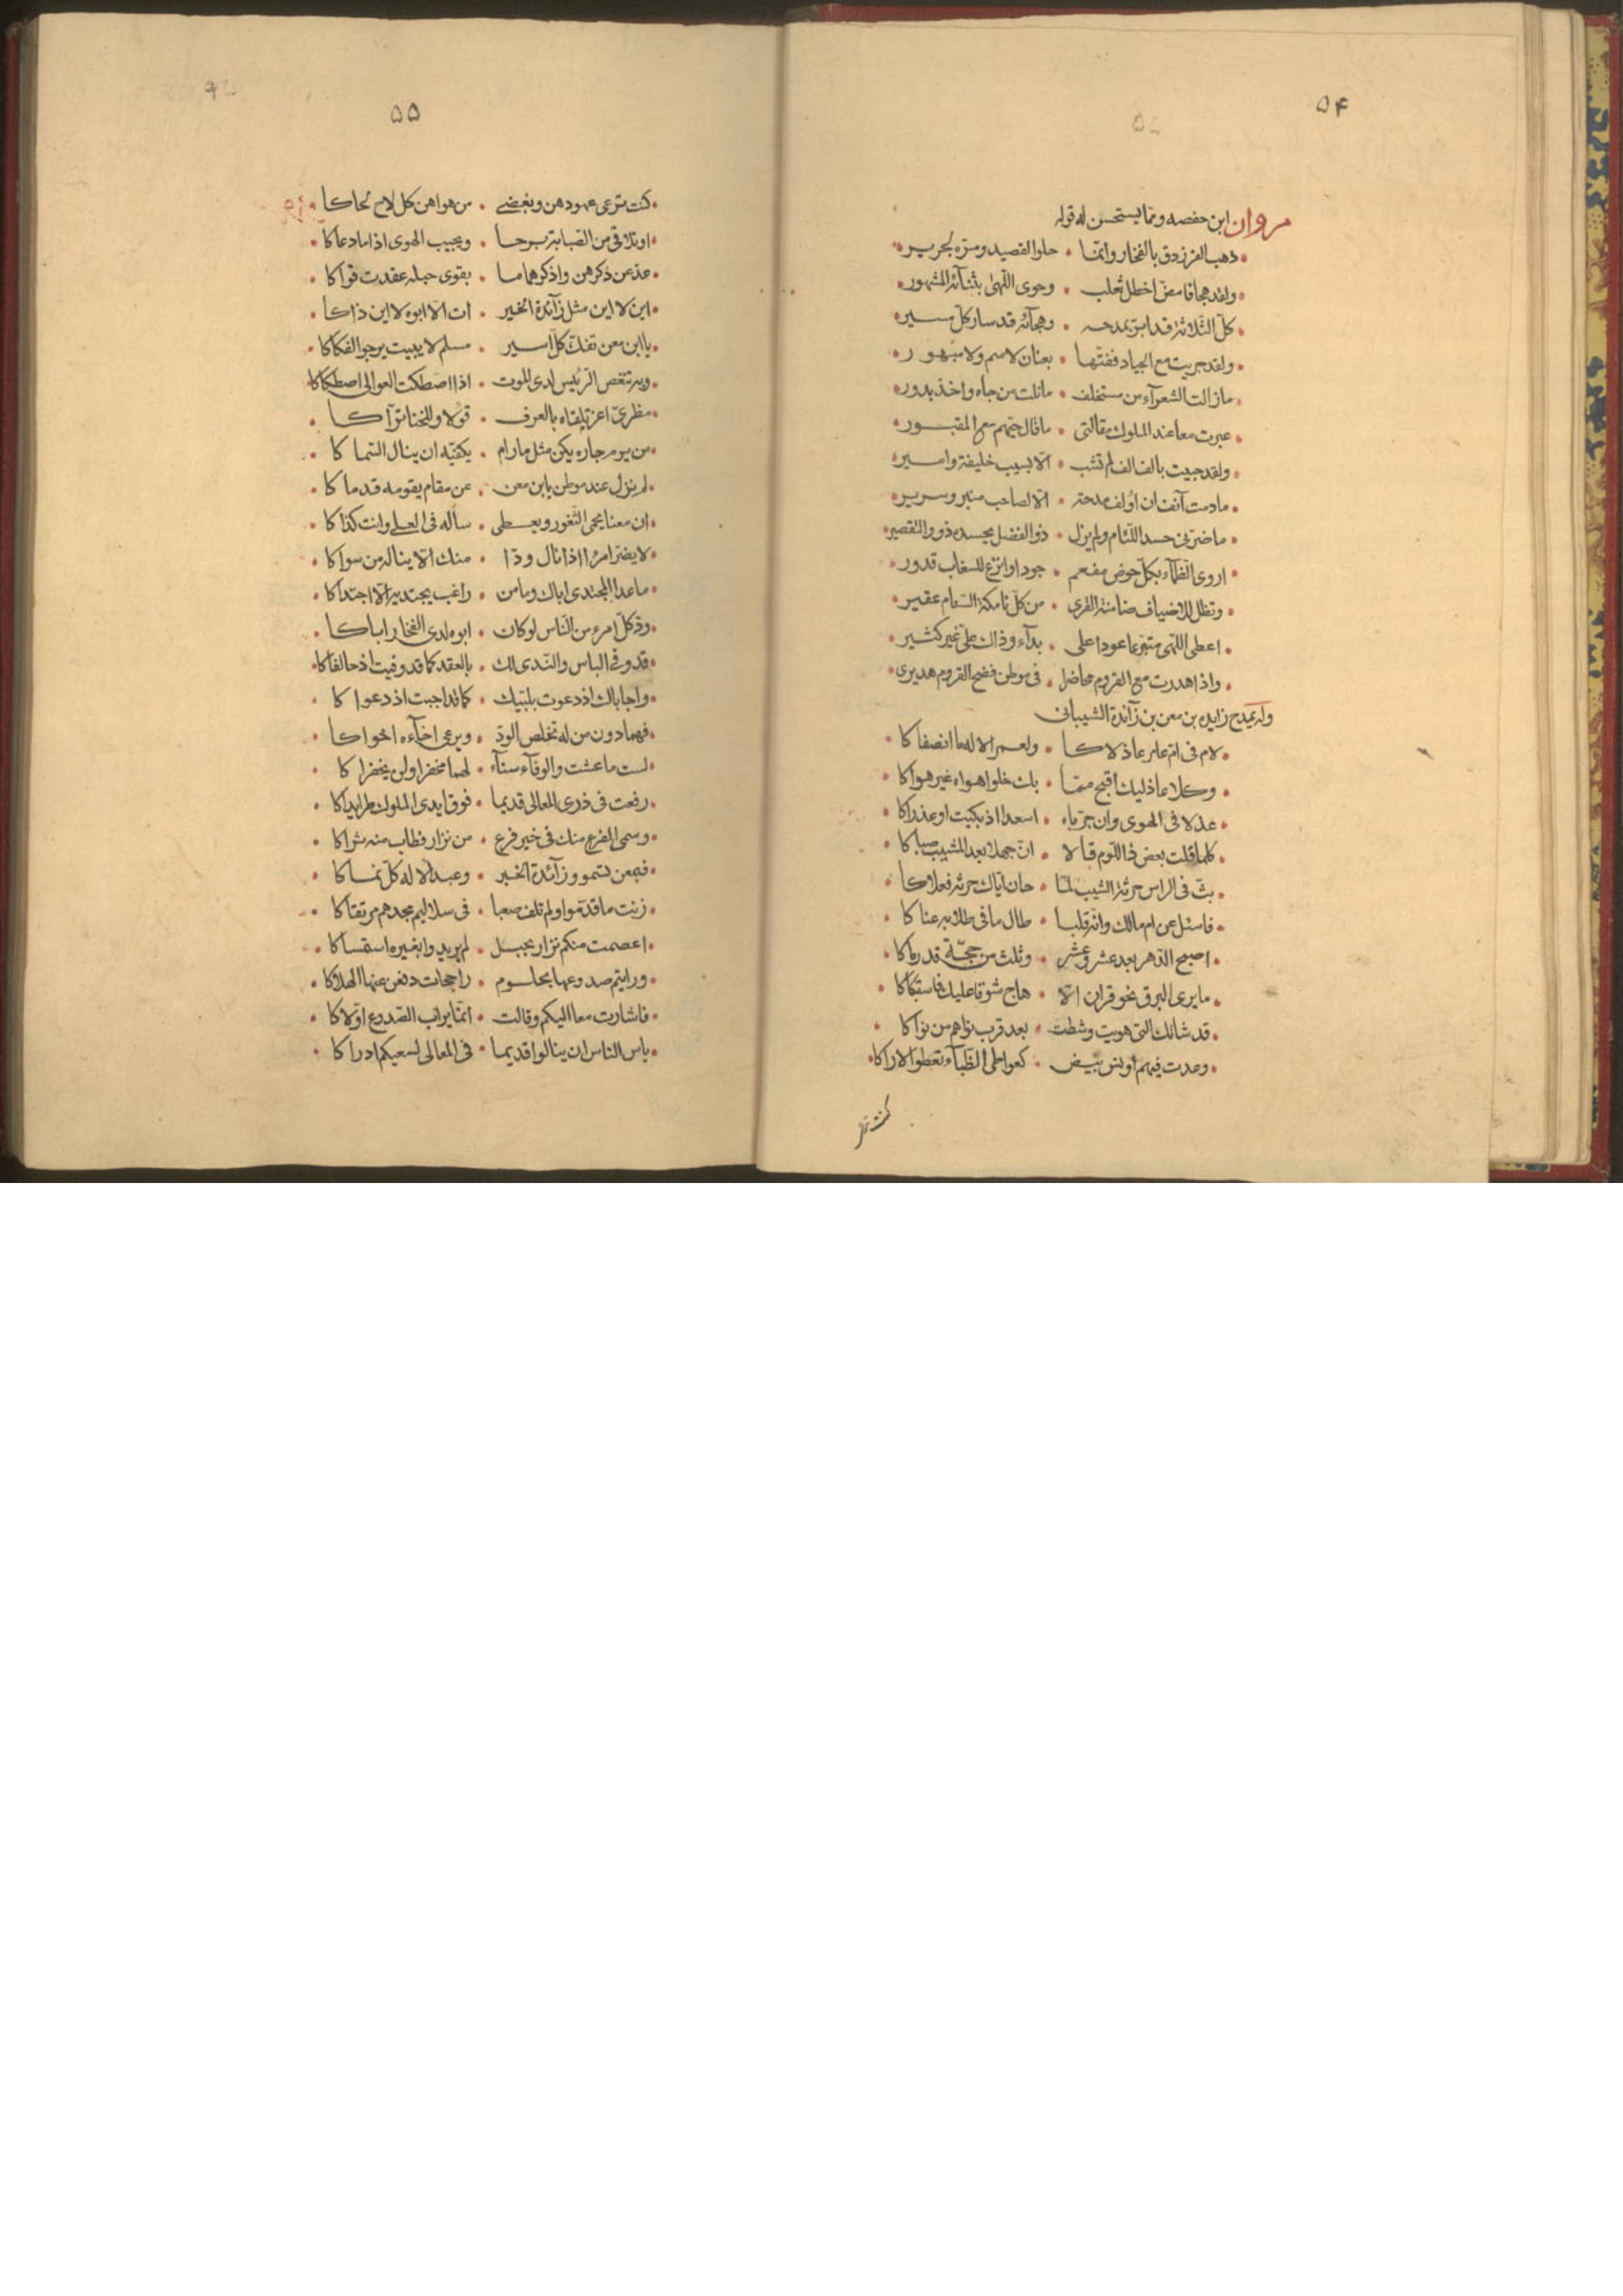 ۵۴
مروان ابن حفصه ومما يستحسن له قوله
ذهب الفرزدق بالفخار وانما • حلو القصيد ومره لجرير
ولقد هجا فامض اخطل تغلب • وحوى اللهى بثنآئه المشهور
كل الثلاثة قد ابر بمدحه • وهجآئه قد سار كل مسير
ولقد جريت مع الجياد ففتها • بعنان لا سم ولا مبهور
مازالت الشعرآء من مستخلف • مانلت من جاه واخذ بدور
عبرت معا عند الملوك مقالتى • ماقال حيهم مع المقبور
ولقد حبيت بالف الف لم تشب • الا بسيب خليفة وامير
مادمت آنف ان اولف مدحة • الا لصاحب منبر وسرير
ماضرنى حسد اللئام ولم يزل • ذو الفضل يحسده ذوو التقصير
اروى الظمآء بكل حوض مفعم • جودا واترع للسغاب قدور
وتظل للاضياف ضامنة القرى • من كل تامكة السنام عقير
اعطى اللهى متبرعا عودا على • بدآء وذاك على غير كثير
واذا هدرت مع القروم محاضرا • فى موطن فضح القروم هديرى
وله يمدح زايده بن معن بن زآئدة الشيبانى
لام فى ام عامر عاذلاكا • ولعمر الاله ما انصفاكا
وكلا عاذليك اقبح مما • بك خلوا هواه غير هواكا
عذلا فى الهوى وان جرباه • اسعدا اذ بكيت او عذراكا
كلما قلت بعض ذا اللوم قالا • ان جهلا بعد المشيب صباكا
بث فى الراس حرثه الشيب لما • حان اياك حرثه فعلاكا
فاسئل عن ام مالك وانه قلبا • طال مافى طلابه عناكا
اصبح الدهر بعد عشر وعشر • وثلث من حجة قد رماكا
مايرى البرق نحو قران الا • هاج شوقا عليك فاستبكاكا
قد شاتك التى هويت وشطت • بعد قرب نواهم من نواكا
وغدت فيهم اوانس بيض • كعواطى الظبآء تعطو الاراكا
كنت ترعى
۵۵
كنت ترعى عهودهن وبغضى • من هواهن كل لاح لحاكا
اوتلاقى من الصبابة برحا • ويجيب الهوى اذا مادعاكا
عد عن ذكرهن واذكر هماما • بقوى حبله عقدت قواكا
اين لا اين مثل زآئدة الخير • ات الا ابوه لا اين ذاكا
يا ابن معن تفك كل اسير • مسلم لا يبيت يرجو الفكاكا
وبه تقعص الرئيس لدى الموت • اذا اصطكت العوالى اصطكاكا
مطرى اغر تلقاه بالعرف • قؤلا وللخنا تراكا
من يرم جاره يكن مثل مارام • بكفيه ان ينال السماكا
لم نزل عند موطن يا بن معن • عن مقام يقومه قدماكا
ان معنا يحمى الثغور ويعطى • ساله فى العلى وانت كذاكا
لايضر امرا اذا نال ودا • منك الا يناله من سواكا
ماعدا المجتدى اباك ومامن • راغب يجتديه الا اجتداكا
ود كل امرء من الناس لو كان • ابوه لدى الفخار اباكا
قد وفى الباس والندى لك • بالعقد كما قد وفيت اذ حالفاكا
واجاباك اذ دعوت بلبيك • كما قد اجبت اذ دعواكا
فهما دون من له تخلص الود • ويرعى اخآءه اخواكا
لست ماعشت والوفآء سنآء • لهما مخفرا ولن يخفراكا
رفعت فى ذرى المعالى قديما • فوق ايدى الملوك طرا يداكا
وسمى الفرع منك فى خير فرع • من نزار فطاب منه ثراكا
فبمعن تسمو وزآئدة الخير • وعبد الاله كل نماكا
زنت ماقدموا ولم تلف صعبا • فى سلاليم مجدهم مرتقاكا
اعصمت منكم نزار بحبل • لم يريدوا بغيره استمساكا
ورايتم صدوعها بحلوم • راجحات دفعن عنها الهلاكا
فاشارت معا اليكم وقالت • انما يراب الصدوع اولاكا
ياس الناس ان ينالوا قديما • فى المعالى لسعيكم ادراكا